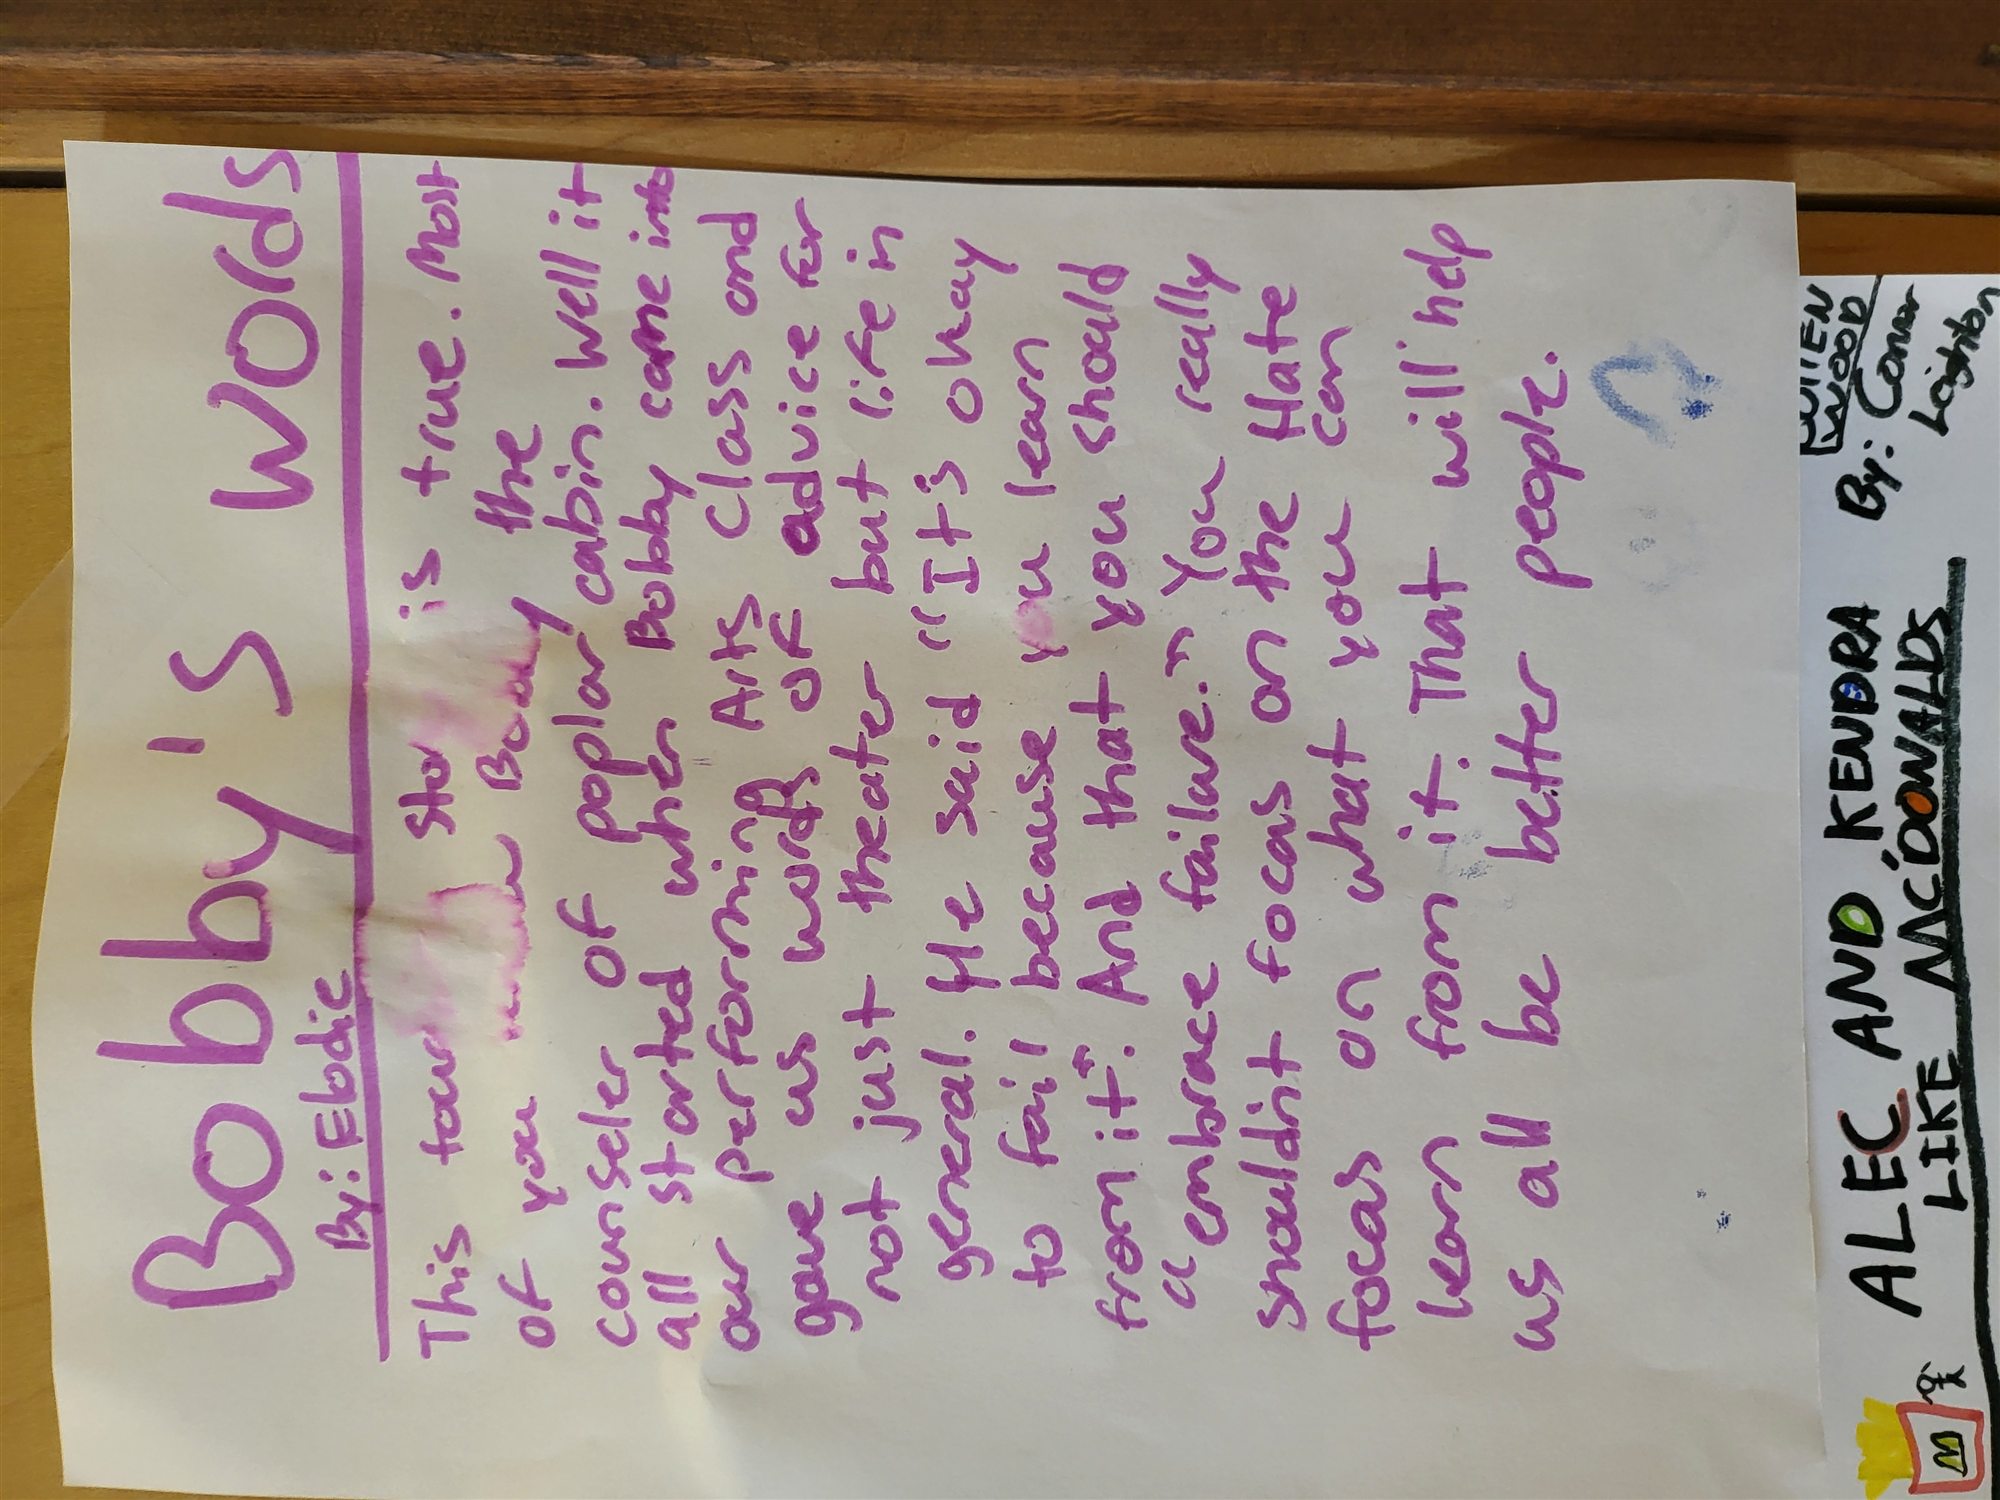 Bobby's words
By: Elodie
This is true. Most
of you Bobby the
counseler of poplar cabin. Well it
all started when Bobby came into
our performing Arts Class and
gave us words of advice for
not just theater but life in
general. He said "It's okay
to fail because you learn
from it". And that you should
"embrace failure." You really
shouldnt focas on the Hate
focas on what you can
learn from it. That will help
us all be better people.
ALEC AND KENDRA
LIKE MCDONALDS
By: Conor
Leighton
WOOD
M